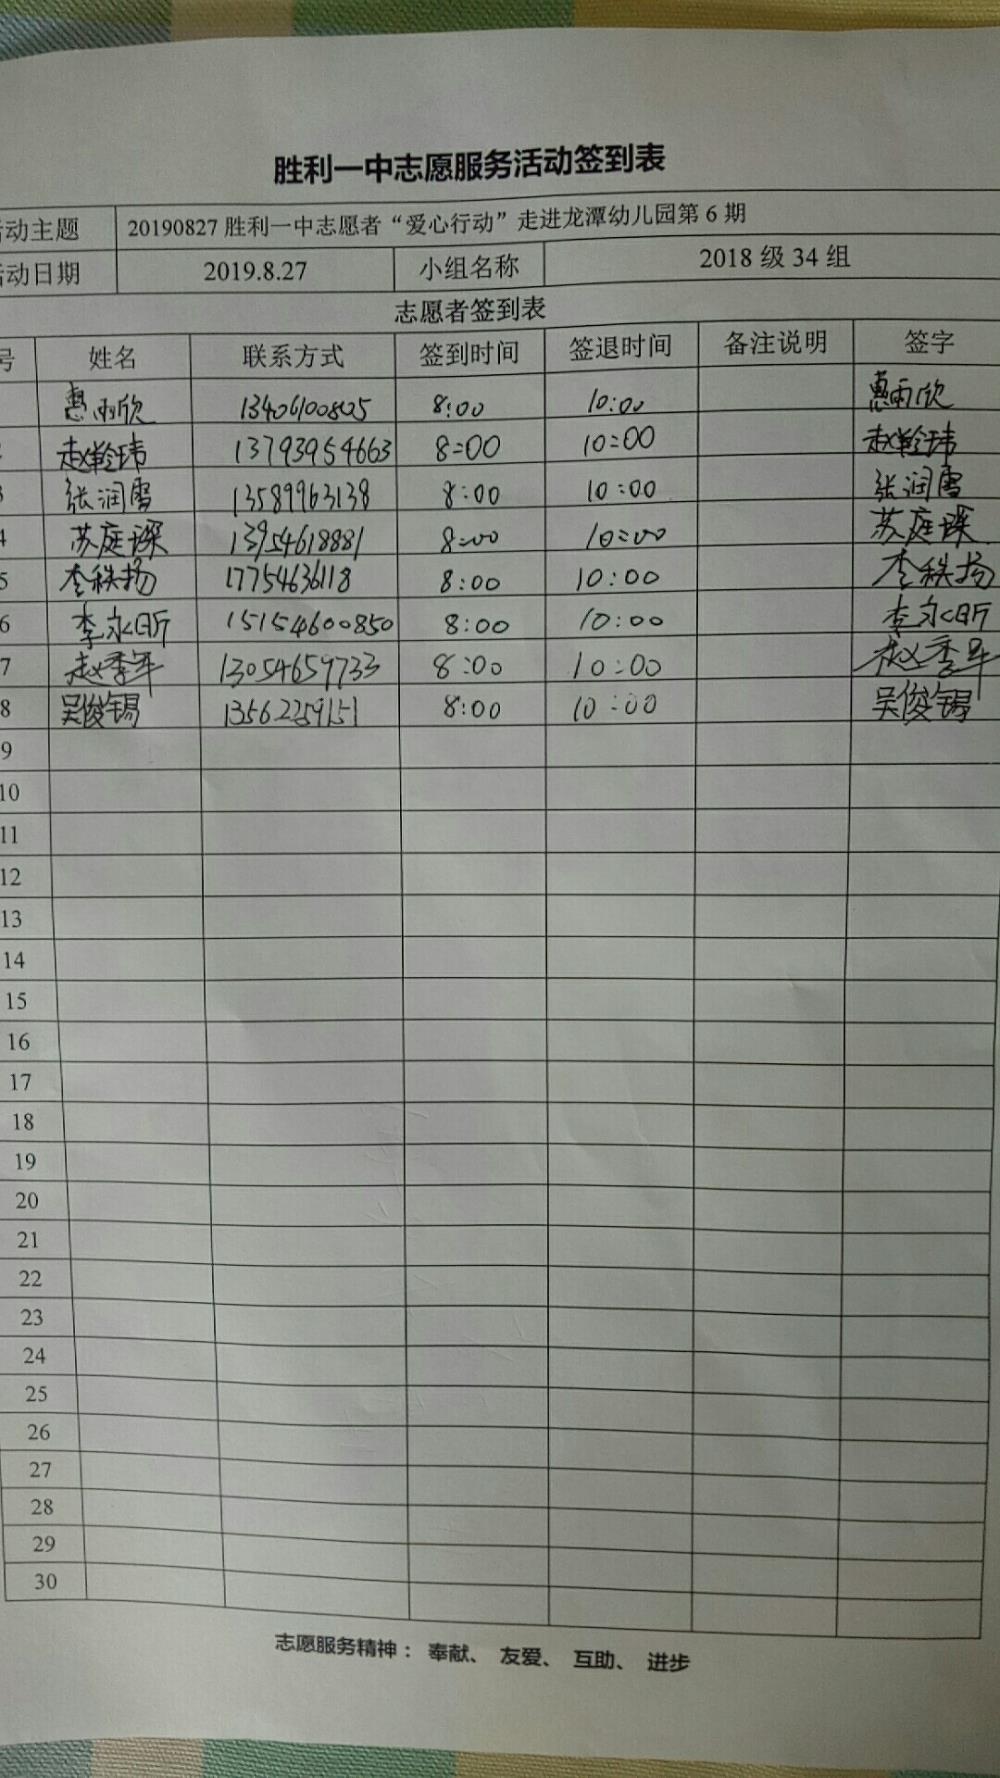 胜利一中志愿服务活动签到表
活动主题 20190827 胜利一中志愿者“爱心行动”走进龙潭幼儿园第 6 期
活动日期 2019.8.27 小组名称 2018 级 34 组
志愿者签到表
号 姓名 联系方式 签到时间 签退时间 备注说明 签字
惠雨欣 13406100805 8:00 10:00 惠雨欣
2 赵羚玮 13793954663 8:00 10:00 赵羚玮
3 张润雪 13589963138 8:00 10:00 张润雪
4 苏庭琛 13954618881 8:00 10:00 苏庭琛
5 李秩扬 17754636118 8:00 10:00 李秩扬
6 李永昕 15154600850 8:00 10:00 李永昕
7 赵季军 13054659733 8:00 10:00 赵季军
8 吴俊锡 13562259151 8:00 10:00 吴俊锡
9
10
11
12
13
14
15
16
17
18
19
20
21
22
23
24
25
26
27
28
29
30
志愿服务精神： 奉献、 友爱、 互助、 进步